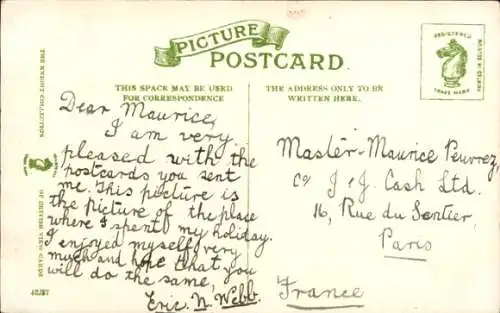 PICTURE
POSTCARD.
REGISTERED
TRADE MARK
THIS SPACE MAY BE USED
FOR CORRESPONDENCE
THE ADDRESS ONLY TO BE
WRITTEN HERE.
Dear Maurice,
I am very
pleased with the
postcards you sent
me. This picture is
the picture of the place
where I spent my holiday.
I enjoyed myself very
much and hope that you
will do the same,
Eric. N. Webb.
Master. Maurice
c/o J & J. Cash Ltd.
16, Rue du Sentier,
Paris
France